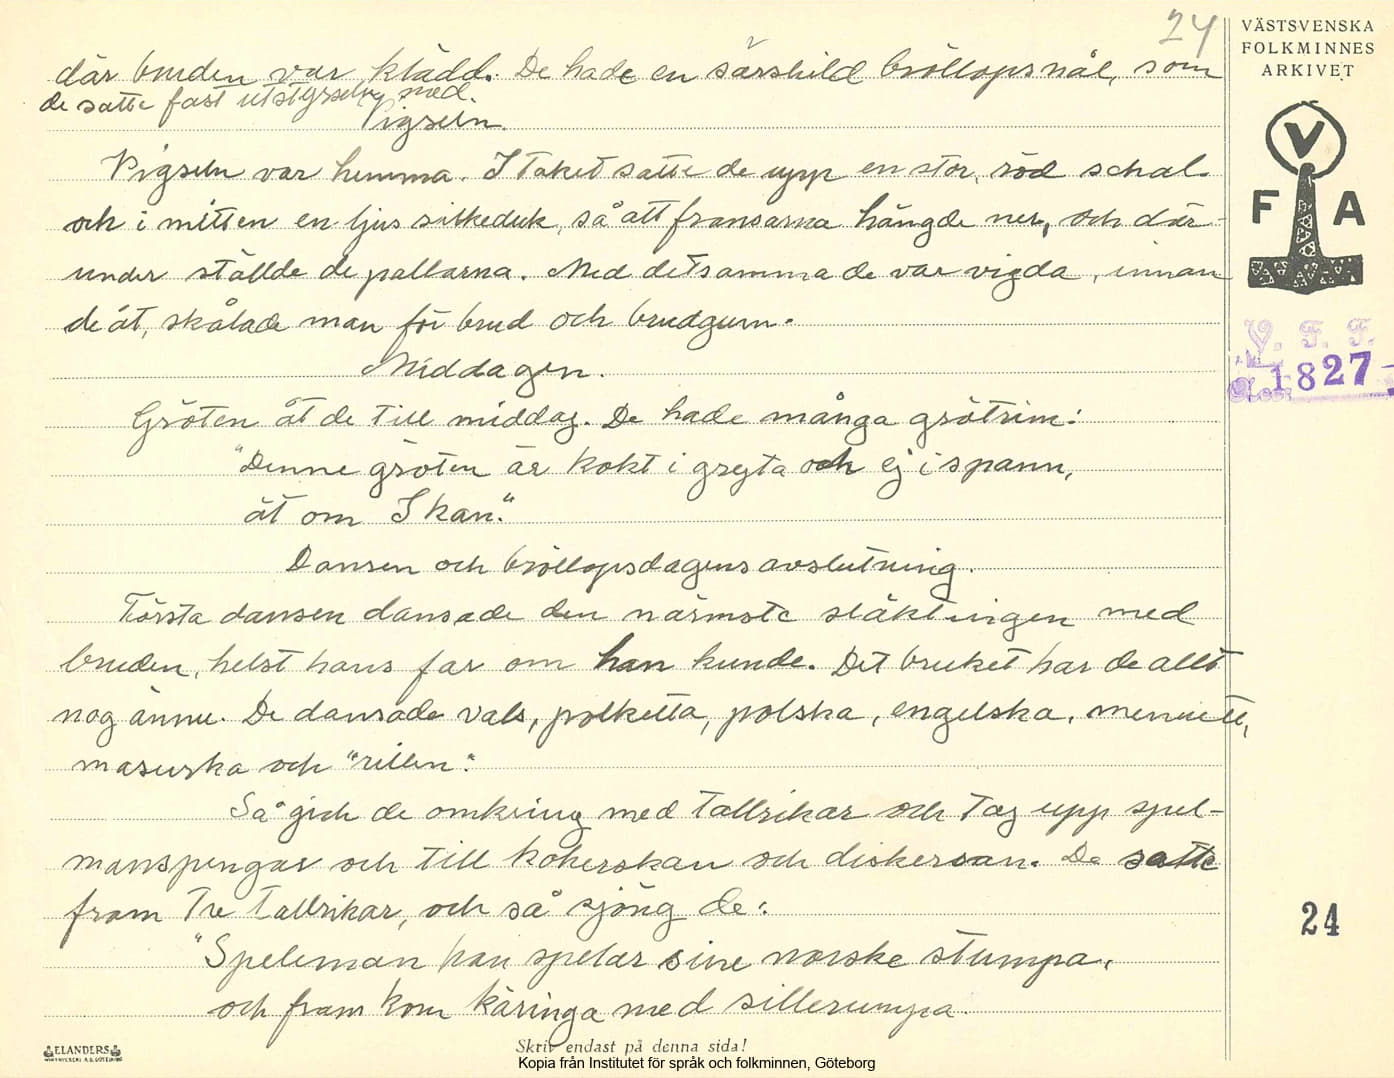 24
VÄSTSVENSKA
FOLKMINNES
ARKIVET
V
F A
V. F. F.
1827
där bruden var klädd. De hade en särskild bröllopsnål, som
de satte fast utstyrseln med.
Vigseln.
Vigseln var hemma. I taket satte de upp en stor, röd schal
och i mitten en ljus silkeduk, så att fransarna hängde ner, och där-
under ställde de pallarna. Med detsamma de var vigda, innan
de åt, skålade man för brud och brudgum.
Middagen.
Gröten åt de till middag. De hade många grötrim:
"Denne gröten är kokt i gryta och ej i spann,
ät om I kan."
Dansen och bröllopsdagens avslutning.
Första dansen dansade den närmste släktingen med
bruden, helst hans far om han kunde. Det bruket har de allt
nog ännu. De dansade vals, polketta, polska, engelska, menuett,
masurka och "rillen".
Så gick de omkring med tallrikar och tag upp spel-
manspengar och till kokerskan och diskersan. De satte
fram tre tallrikar, och så sjöng de:
"Speleman han spelar sine norske stumpa,
och fram kom käringa med sillerumpa.
24
ELANDERS
Skriv endast på denna sida!
Kopia från Institutet för språk och folkminnen, Göteborg